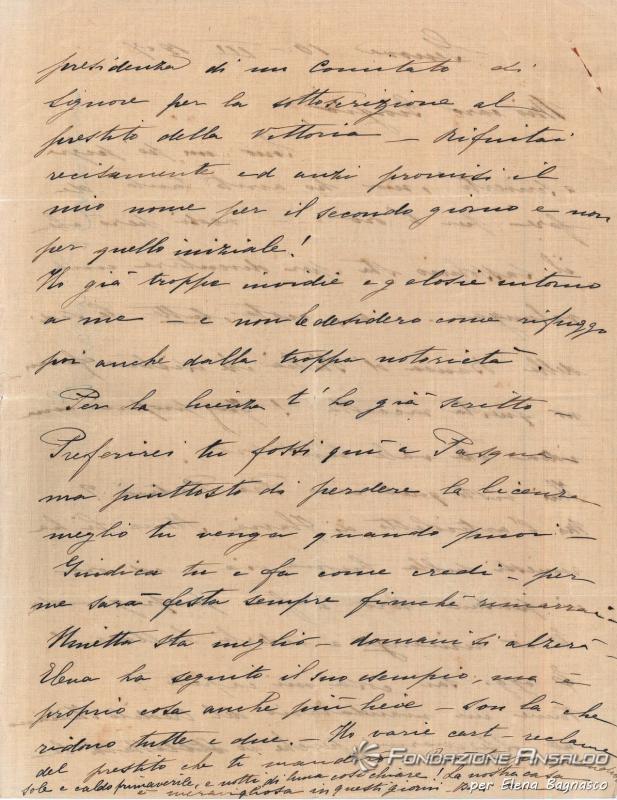 presidenza di un Comitato di
signore per la sottoscrizione al
prestito della Vittoria – Rifiutai
recisamente ed anzi promisi il
mio nome per il secondo giorno e non
per quello iniziale!
Ho già troppe invidie e gelosie intorno
a me – e non le desidero come rifuggo
poi anche dalla troppa notorietà.
Per la licenza t'ho già scritto
Preferirei tu fossi quì a Pasqua
ma piuttosto di perdere la licenza
meglio tu venga quando puoi –
Giudica tu e fa come credi – per
me sarà festa sempre finchè rimarrai –
Ninetta sta meglio – domani si alzerà –
Elena ha seguito il suo esempio, ma è
proprio cosa anche più lieve – son là che
ridono tutte e due. – Ho varie cart. reclame
del prestito che ti mando
sole e caldo primaverile, e notti di luna così chiare! La nostra ca
è meravigliosa in questi giorni
FONDAZIONE ANSALDO
per Elena Bagnasco